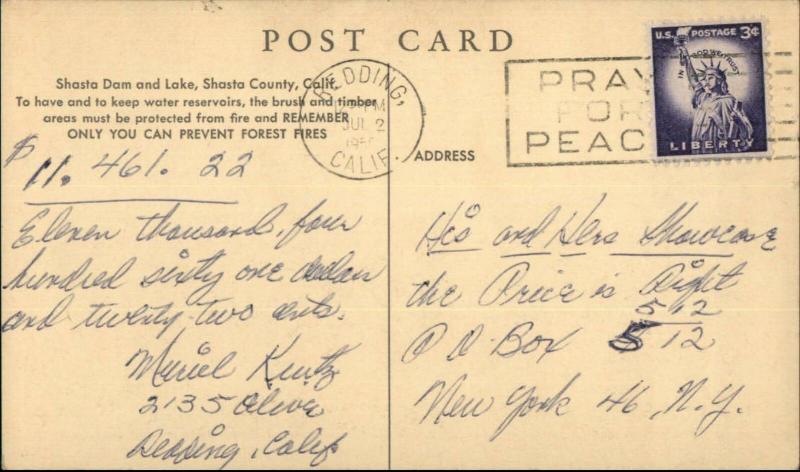 POST CARD
Shasta Dam and Lake, Shasta County, Calif.
To have and to keep water reservoirs, the brush and timber
areas must be protected from fire and REMEMBER
ONLY YOU CAN PREVENT FOREST FIRES
REDDING,
PM
JUL 2
CALIF.
PRAY
FOR
PEAC
U.S. POSTAGE 3¢
IN GOD WE TRUST
LIBERTY
ADDRESS
$ 11.461.22
Eleven thousand, four
hundred sixty one dollars
and twenty-two cents.
Muriel Kurtz
2135 Olive
Redding, Calif
His and Hers Showcase
the Price is Right
512
P O Box 512
New York 46, N.Y.